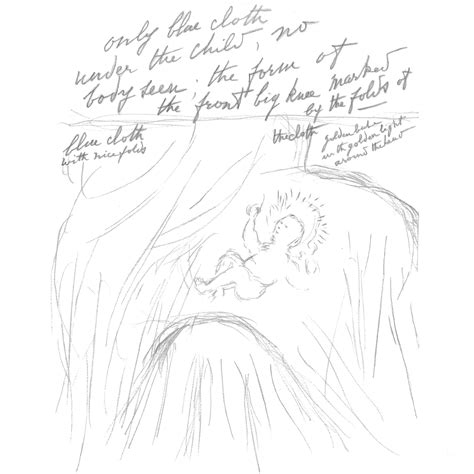 only blue cloth
under the child, no
body seen, the form of
the front big knee marked
by the folds of
the cloth
blue cloth
with nice folds
golden babe
in the golden light
around the head